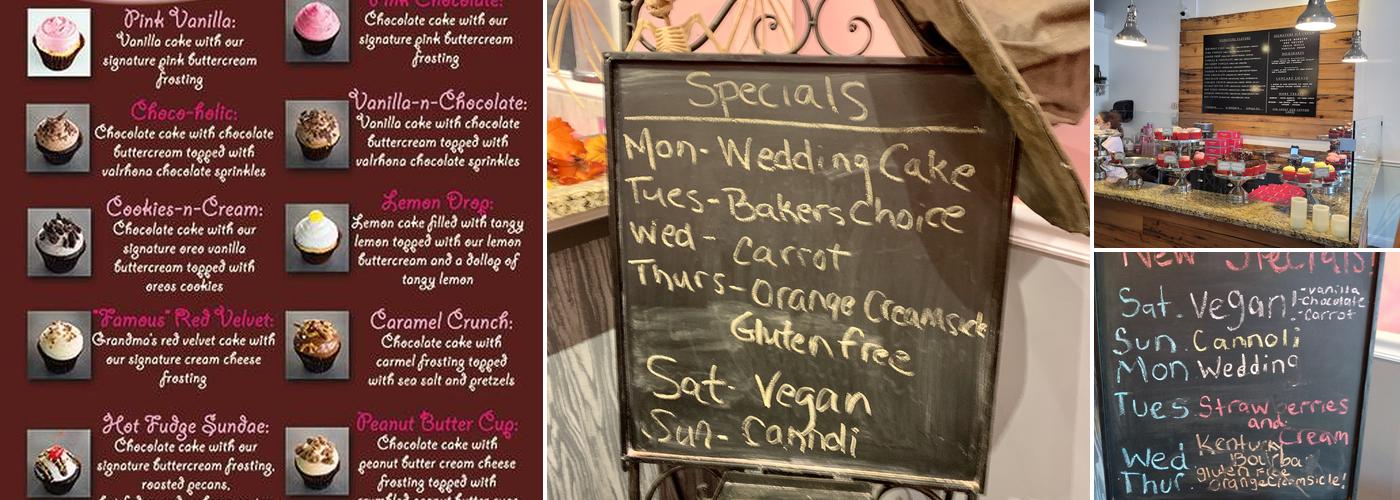 Pink Vanilla:
Vanilla cake with our
signature pink buttercream
frosting
Pink Chocolate:
Chocolate cake with our
signature pink buttercream
frosting
Choco-holic:
Chocolate cake with chocolate
buttercream topped with
valrhona chocolate sprinkles
Vanilla-n-Chocolate:
Vanilla cake with chocolate
buttercream topped with
valrhona chocolate sprinkles
Cookies-n-Cream:
Chocolate cake with our
signature oreo vanilla
buttercream topped with
oreos cookies
Lemon Drop:
Lemon cake filled with tangy
lemon topped with our lemon
buttercream and a dollop of
tangy lemon
"Famous" Red Velvet:
Grandma's red velvet cake with
our signature cream cheese
frosting
Caramel Crunch:
Chocolate cake with
carmel frosting topped
with sea salt and pretzels
Hot Fudge Sundae:
Chocolate cake with our
signature buttercream frosting,
roasted pecans,
Peanut Butter Cup:
Chocolate cake with
peanut butter cream cheese
frosting topped with
Specials
Mon- Wedding Cake
Tues- Bakers Choice
Wed- Carrot
Thurs- Orange Creamsick
Gluten free
Sat- Vegan
Sun- Cannoli
New Specials
Sat. Vegan -vanilla
-chocolate
-carrot
Sun. Cannoli
Mon Wedding
Tues Strawberries
and
Cream
Wed Kentucky
Bourbo
Thur. gluten
orange creamsicle!